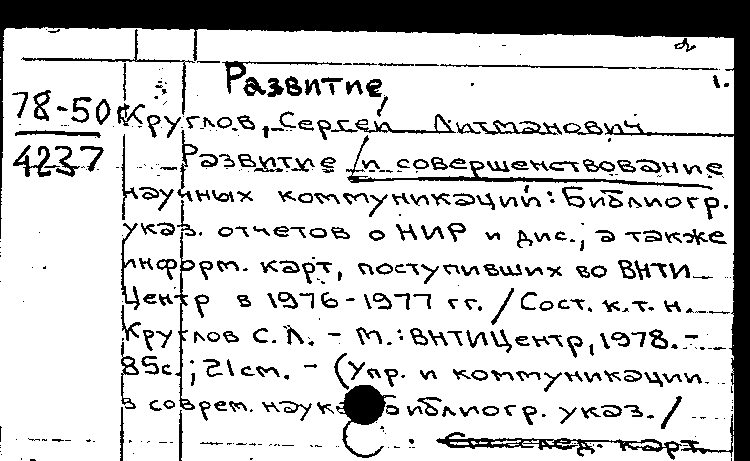 Развитие 1.
78-50
4237
Круглов, Сергей Литманович
Развитие и совершенствование
научных коммуникаций: Библиогр.
указ. отчетов о НИР и дис., а также
информ. карт, поступивших во ВНТИ
Центр в 1976-1977 гг. / Сост. к.т.н.
Круглов С.Л. - М.: ВНТИЦентр, 1978. -
85с.; 21см. - (Упр. и коммуникации
в соврем. науке Библиогр. указ. /
карт.